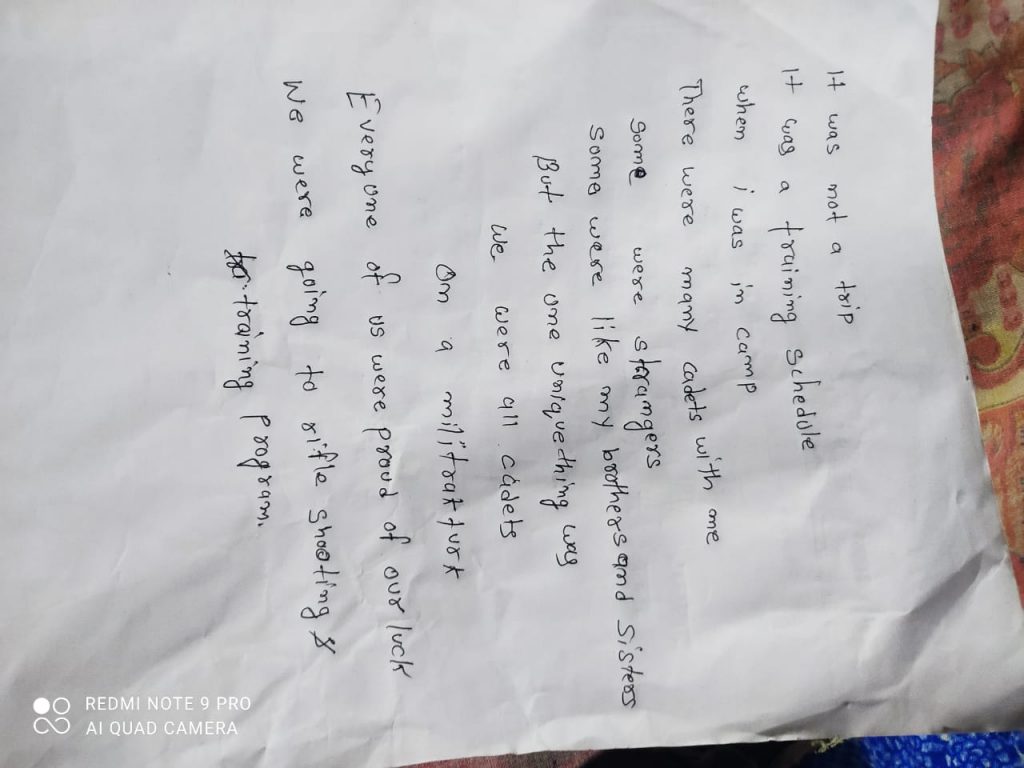 It was not a trip
It was a training schedule
when i was in camp
There were many cadets with me
some were strangers
some were like my brothers and sisters
But the one unique thing was
We were all cadets
On a
Everyone of us were proud of our luck
We were going to rifle shooting &
training program.
REDMI NOTE 9 PRO
AI QUAD CAMERA